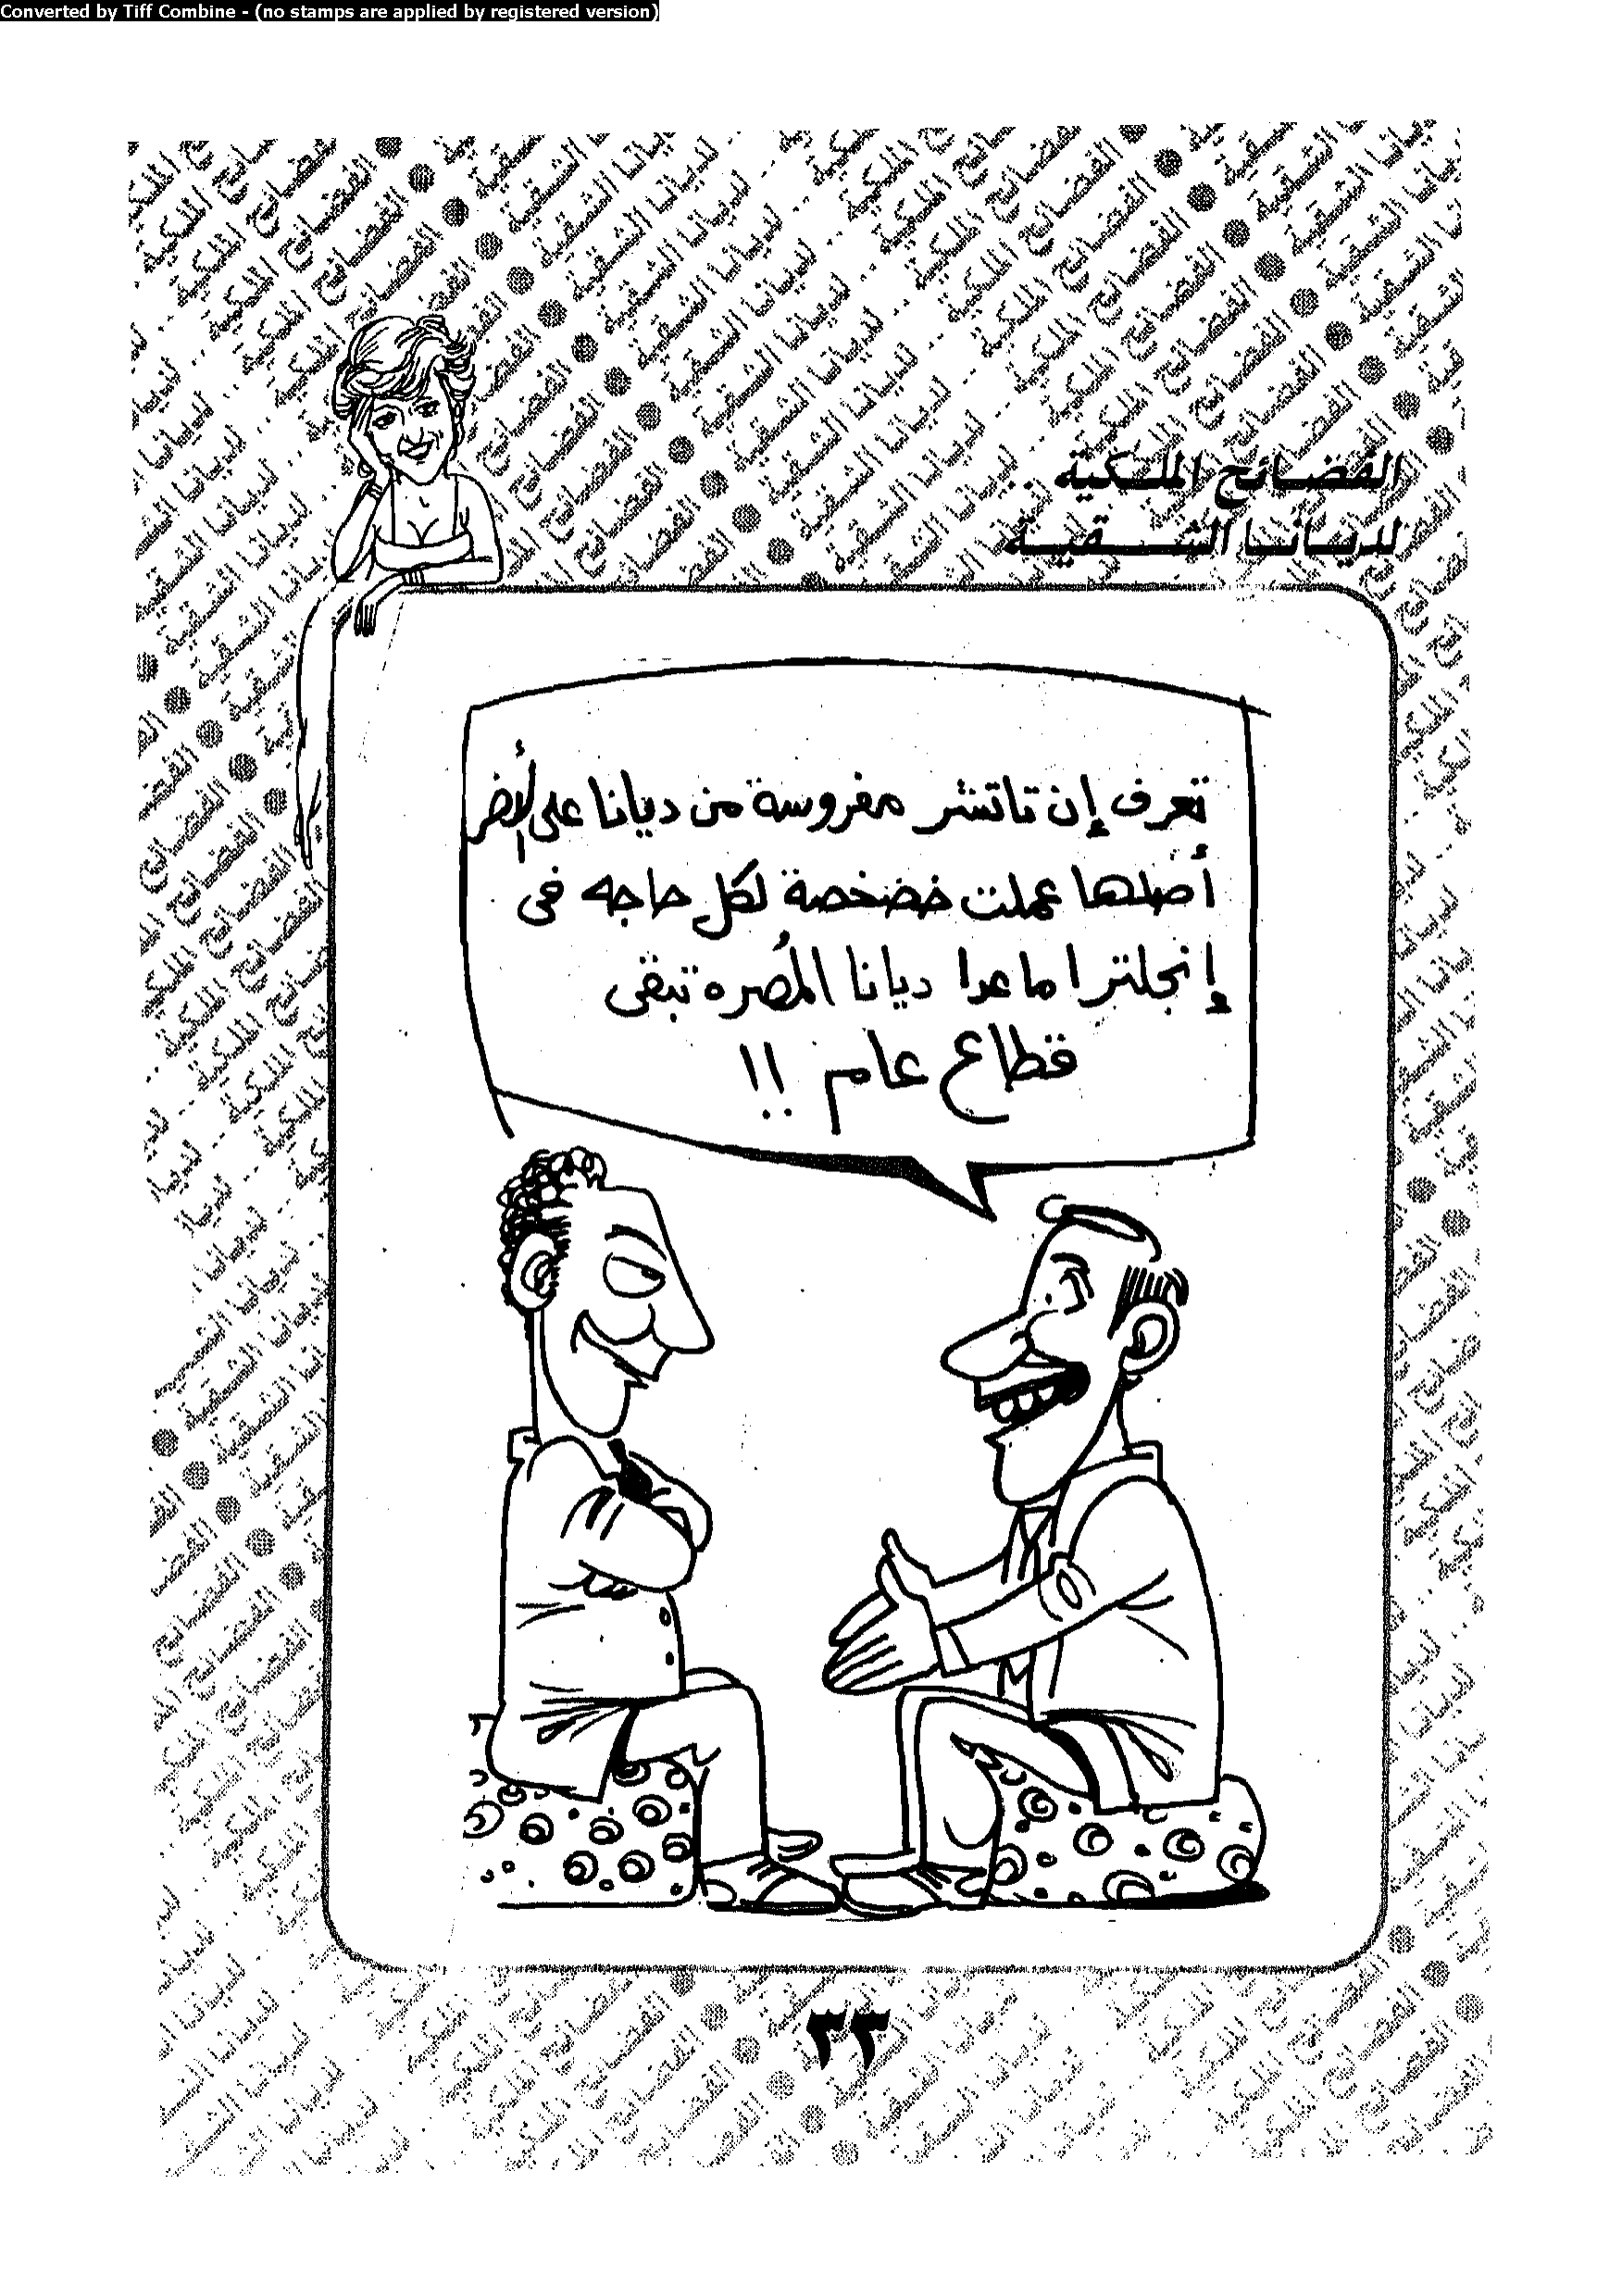 Converted by Tiff Combine - (no stamps are applied by registered version)
الفضائح الملكية ..
لديانا الشقية
تعرف إن تاتشر مفروسة من ديانا على الأخر
أصلها عملت خضخصة لكل حاجه فى
إنجلترا ما عدا ديانا المُصره تبقى
قطاع عام !!
٣٣